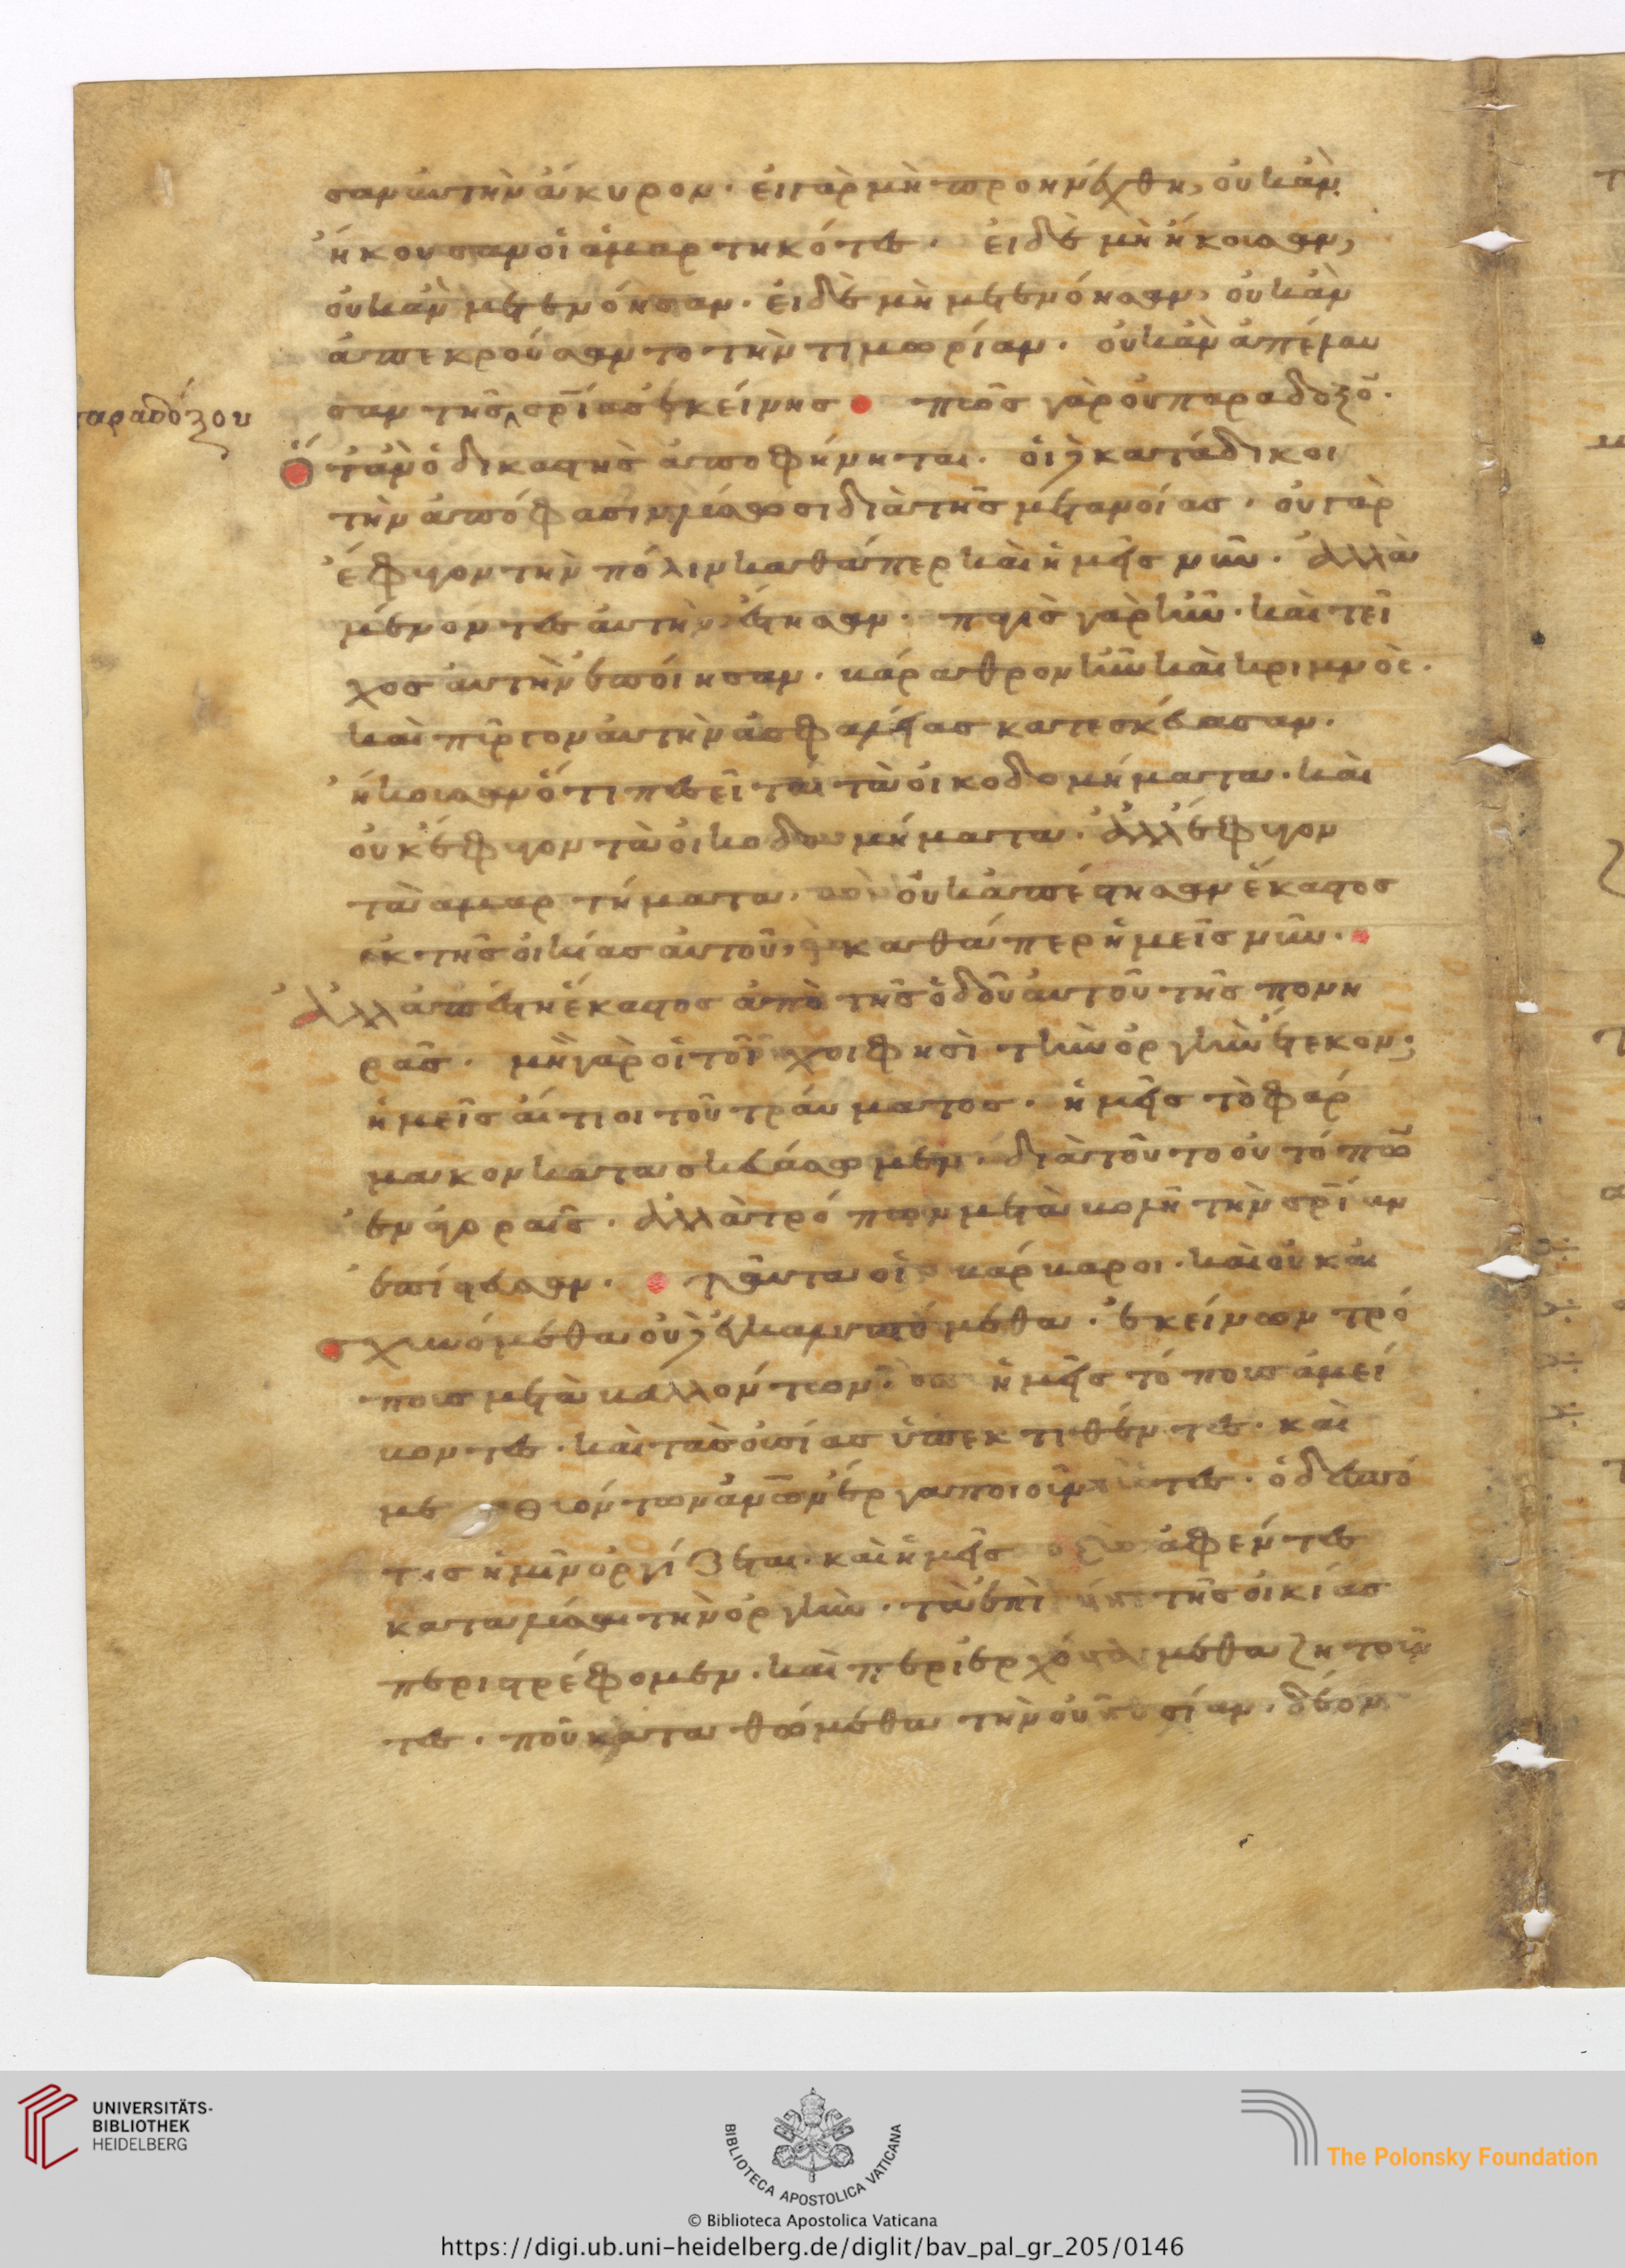 σαν αυτὴν ἄκυρον. εἰ γὰρ μὴ προηνέχθη, οὐκ ἂν
ἤκουσαν οἱ ἁμαρτηκότες. εἰ δὲ μὴ ἤκουσαν,
οὐκ ἂν μετενόησαν. εἰ δὲ μὴ μετενόησαν, οὐκ ἂν
ἀπεκρούσαντο τὴν τιμωρίαν. οὐκ ἂν ἀπέλαυ
σαν τῆς σρίας ἐκείνης πῶς γὰρ οὐ παραδόξου.
παραδόξου
ὅταν ὁ δικαστὴς ἀποφήνηται. οἱ κατάδικοι
τὴν ἀπόφασιν λύσωσι διὰ τῆς μετανοίας. οὐ γὰρ
ἔφυγον τὴν πόλιν καθάπερ καὶ ἡμεῖς νῦν. ἀλλὰ
μένοντες αὐτὴν ἔστησαν. παγὶς γὰρ ἦν. καὶ τεῖ
χος αὐτὴν ἐποίησαν. βάραθρον ἦν καὶ κριμνὸς.
καὶ πῦργον αὐτὴν ἀσφαλείας κατεσκέυασαν.
ἤκουσαν ὅτι πεσεῖται τὰ οἰκοδομήματα. καὶ
οὐκ ἔφυγον τὰ οἰκοδομήματα. ἀλλ' ἔφυγον
τὰ αμαρτήματα. οὐκ ἀπέστησαν ἕκαστος
ἐκ τῆς οἰκίας αὐτοῦ, καθάπερ ἡμεῖς νῦν.
Ἀλλ' ἀπέστη ἕκαστος ἀπὸ τῆς ὁδοῦ αὐτοῦ τῆς πονη
ρᾶς. μὴ γὰρ οἱ τοῖχοι φησὶ τὴν ὀργὴν ἔτεκον;
ἡμεῖς αἴτιοι τοῦ τραύματος. ἡμεῖς τὸ φάρ
μακον κατασκευάσωμεν. διὰ τοῦτο οὐ τόπων
ἐναλλαγαῖς. ἀλλὰ τρόπων μεταβολῆ τὴν σρίαν
ἐπίστευσαν. ταῦτα οἱ βάρβαροι. καὶ οὐκ αι
σχυνόμεθα οὐδὲ ἐγκαλυπτόμεθα. ἐκείνων τρό
πους μεταβαλλόντων. ἡμεῖς τόπους ἀμεί
βοντες. καὶ τὰς οὐσίας ὑπεκτιθέντες. καὶ
με θυόντων ἀνων ἔργα ποιοῦντες. ὁ δεσπό
της ἡμῖν ὀργίζεται. καὶ ἡμεῖς ἀφέντες
καταλῦσαι τὴν ὀργὴν. τὰ ἐπὶ τῆς οἰκίας
περιστρέφομεν. καὶ περιερχόμεθα ζητοῦν
τες. ποῦ καταθώμεθα τὴν οὐσίαν. δέον
UNIVERSITÄTS-
BIBLIOTHEK
HEIDELBERG
BIBLIOTECA APOSTOLICA VATICANA
The Polonsky Foundation
© Biblioteca Apostolica Vaticana
https://digi.ub.uni-heidelberg.de/diglit/bav_pal_gr_205/0146